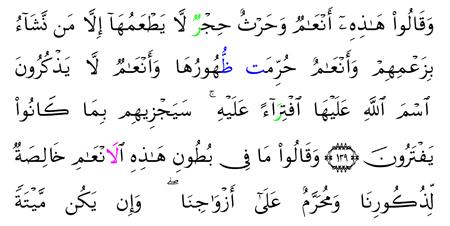 وَقَالُوا۟ هَـٰذِهِۦٓ أَنْعَـٰمٌ وَحَرْثٌ حِجْرٌ لَّا يَطْعَمُهَآ إِلَّا مَن نَّشَآءُ
بِزَعْمِهِمْ وَأَنْعَـٰمٌ حُرِّمَت ظُّهُورُهَا وَأَنْعَـٰمٌ لَّا يَذْكُرُونَ
ٱسْمَ ٱللَّهِ عَلَيْهَا ٱفْتِرَآءً عَلَيْهِ ۚ سَيَجْزِيهِم بِمَا كَانُوا۟
يَفْتَرُونَ ﴿١٣٩﴾ وَقَالُوا۟ مَا فِى بُطُونِ هَـٰذِهِ ٱلَانْعَـٰمِ خَالِصَةٌ
لِّذُكُورِنَا وَمُحَرَّمٌ عَلَىٰٓ أَزْوَٰجِنَا ۖ وَإِن يَكُن مَّيْتَةً